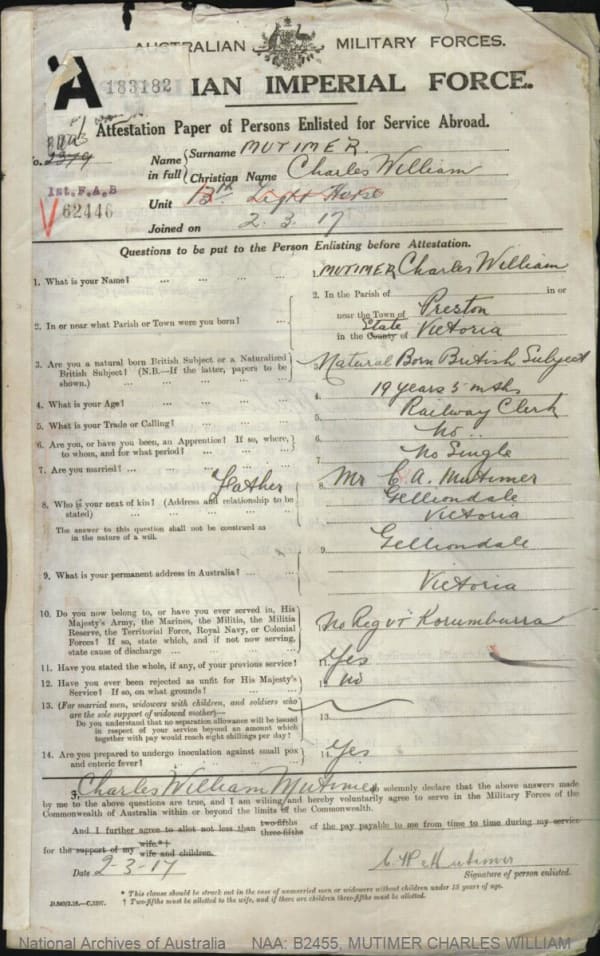 AUSTRALIAN MILITARY FORCES.
A 183182 IAN IMPERIAL FORCE.
Attestation Paper of Persons Enlisted for Service Abroad.
No. 2379
Name in full { Surname MUTIMER.
Christian Name Charles William
1st. F.A.B
62446
Unit 13th Light Horse
Joined on 2.3.17
Questions to be put to the Person Enlisting before Attestation.
1. What is your Name? ... ... ... ... 1. MUTIMER Charles William
2. In or near what Parish or Town were you born? ... 2. In the Parish of ... in or
near the Town of Preston
in the County of State Victoria
3. Are you a natural born British Subject or a Naturalized British Subject? (N.B.—If the latter, papers to be shown.) ... 3. Natural Born British Subject
4. What is your Age? ... ... ... ... 4. 19 years 5 mths
5. What is your Trade or Calling? ... ... ... 5. Railway Clerk
6. Are you, or have you been, an Apprentice? If so, where, to whom, and for what period? ... ... 6. No
7. Are you married? ... ... ... ... 7. No Single
8. Who is your next of kin? (Address and relationship to be stated) ... Father 8. Mr C A. Mutimer
Gelliondale
Victoria
The answer to this question shall not be construed as in the nature of a will.
9. What is your permanent address in Australia? ... 9. Gelliondale
Victoria
10. Do you now belong to, or have you ever served in, His Majesty's Army, the Marines, the Militia, the Militia Reserve, the Territorial Force, Royal Navy, or Colonial Forces? If so, state which, and if not now serving, state cause of discharge ... No Reg at Korumburra
11. Have you stated the whole, if any, of your previous service? 11. Yes
12. Have you ever been rejected as unfit for His Majesty's Service? If so, on what grounds? 12. No
13. (For married men, widowers with children, and soldiers who are the sole support of widowed mother)—
Do you understand that no separation allowance will be issued in respect of your service beyond an amount which together with pay would reach eight shillings per day? 13.
14. Are you prepared to undergo inoculation against small pox and enteric fever? 14. Yes
I, Charles William Mutimer do solemnly declare that the above answers made
by me to the above questions are true, and I am willing and hereby voluntarily agree to serve in the Military Forces of the
Commonwealth of Australia within or beyond the limits of the Commonwealth.
And I further agree to allot not less than two-fifths three-fifths of the pay payable to me from time to time during my service
for the support of my wife.*† wife and children.
Date 2-3-17 C W Mutimer
Signature of person enlisted.
* This clause should be struck out in the case of unmarried men or widowers without children under 18 years of age.
† Two-fifths must be allotted to the wife, and if there are children three-fifths must be allotted.
National Archives of Australia NAA: B2455, MUTIMER CHARLES WILLIAM